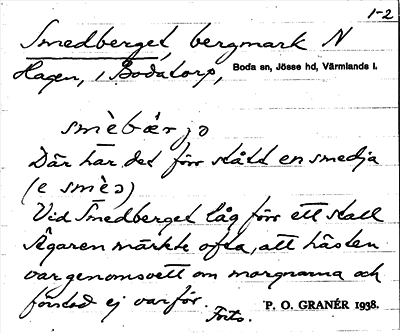 1-2
Smedberget, bergmark N
Hagen, i Bodatorp, Boda sn, Jösse hd, Värmlands l.
smèbær,jə
Där har det förr stått en smedja
(e smèə)
Vid Smedberget låg förr ett stall
Ägaren märkte ofta, att hästen
var genomsvett om morgnarna och
förstod ej varför.
Forts. P. O. GRANÉR 1938.